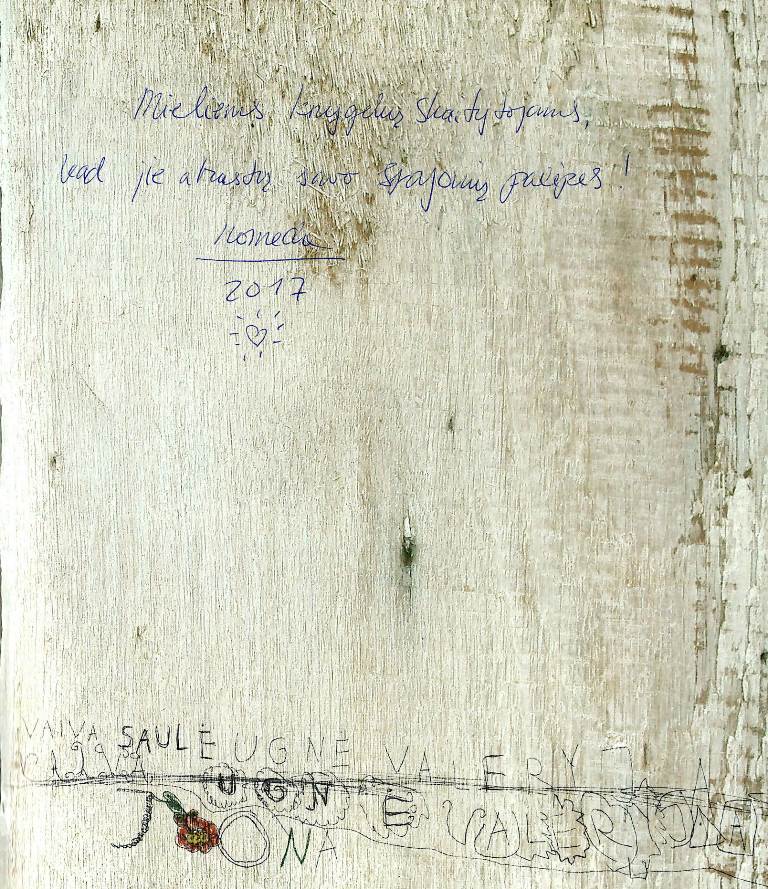 Mieliems knygelių skaitytojams,
kad jie atrastų savo svajonių
2017
VAIVA SAULĖ UGNĖ VALERY
UGNĖ VALERIJONA
JONA